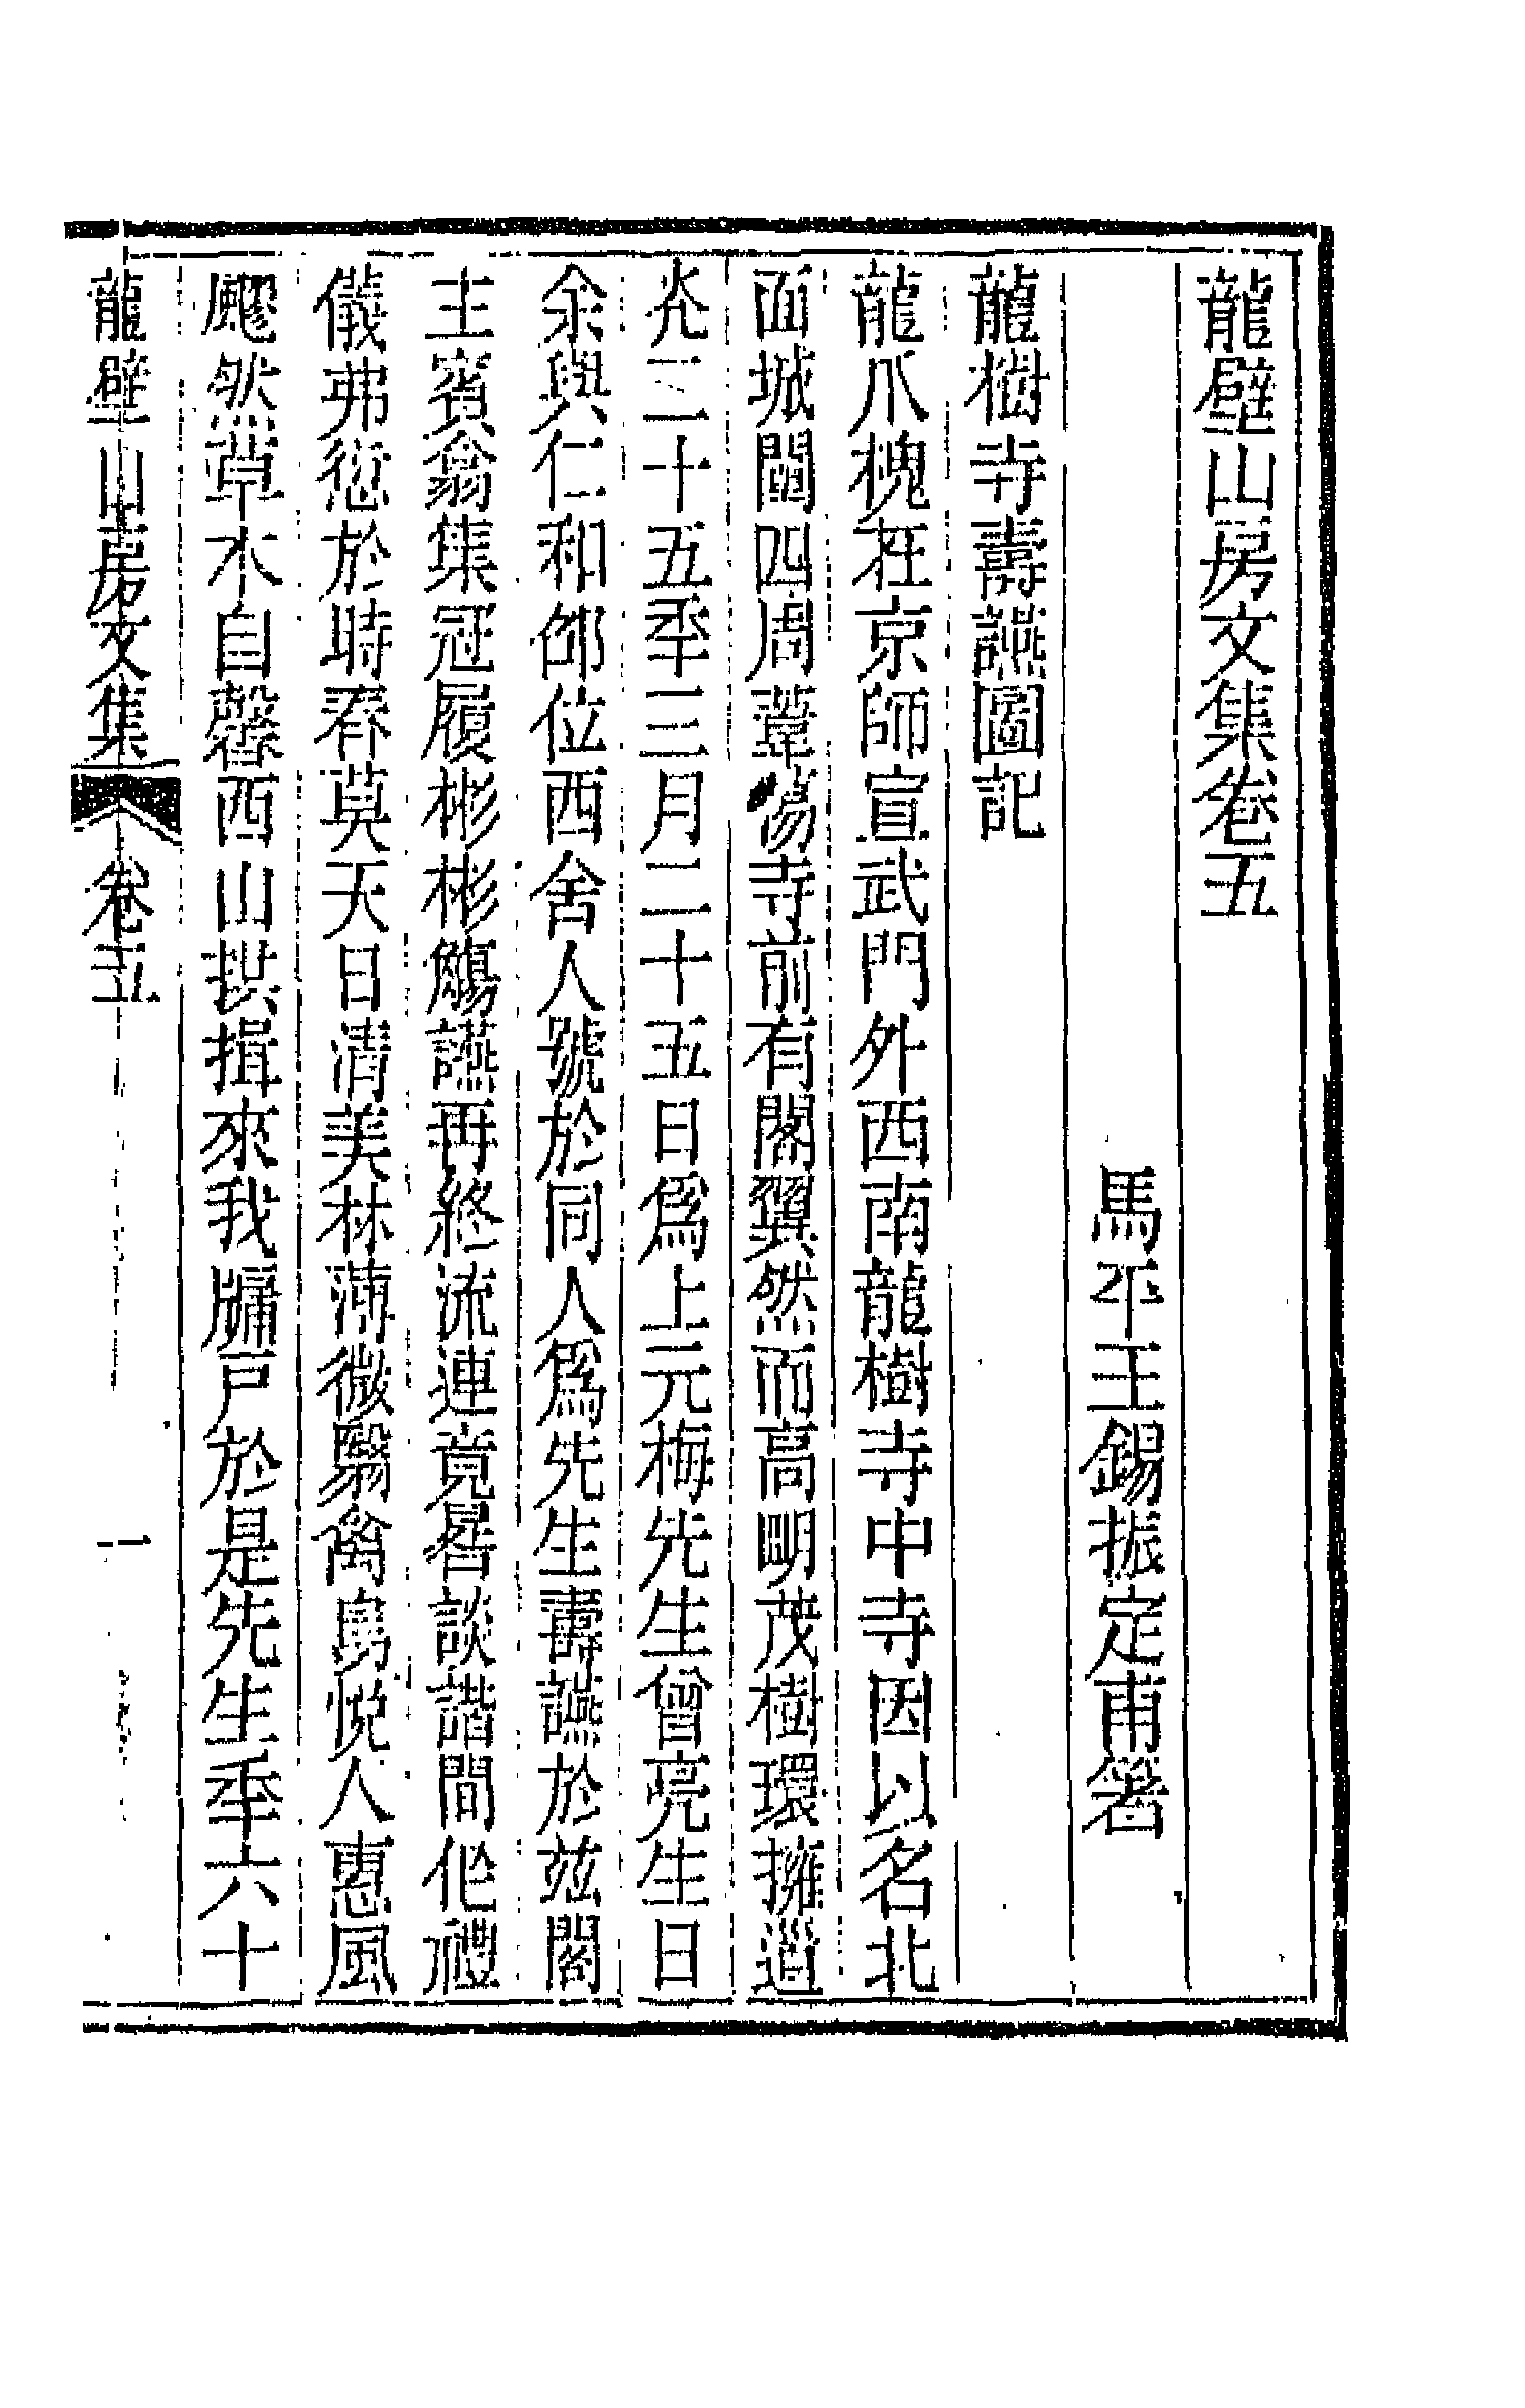 龍壁山房文集卷五
馬平王錫振定甫箸
龍樹寺壽讌圖記
龍爪槐在京師宣武門外西南龍樹寺中寺因以名北
面城闉四周葦蕩寺前有閣翼然而高朙茂樹環擁道
光二十五秊三月二十五日爲上元梅先生曾亮生日
余與仁和邵位西舍人號於同人爲先生壽讌於茲閣
主賓翕集冠履彬彬觴讌再終流連竟晷談諧間作禮
儀弗愆於時春莫天日清美林薄微翳禽鳥悅人惠風
飂然草木自馨西山拱揖來我牖戶於是先生秊六十
龍壁山房文集 卷五 一